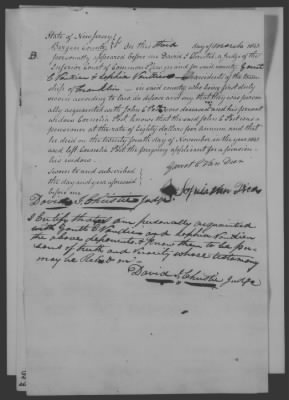 State of New Jersey }
B. Bergen County } SS. On this third day of March 1853
personally appeared before me David I. Christie, a Judge of the
Inferior Court of Common Pleas in and for said county Garrit
and Sophia residents of the town
ship of Franklin in said county who being first duly
sworn according to law do depose and say that they was person
ally acquainted with John C Post deceased and his present
widow Cornelia Post knows that the said John C Post was a
pensioner at the rate of Eighty dollars per annum and that
he died on the twenty fourth day of November in the year
and left Cornelia Post the foregoing applicant for a pension
his widow.
Sworn to and subscribed }
the day and year aforesaid }
before me
David I. Christie Judge
I Certify that I am personally acquainted
with Garrit and Sophia
the above deponents & know them to be per
sons of truth and veracity whose testimony
may be Relied on
David I Christie Judge